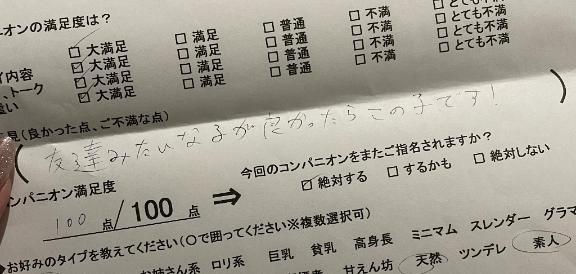 オンの満足度は?
☐ 大満足 ☐ 満足 ☐ 普通 ☐ 不満 ☐ とても不満
イ内容 ☑ 大満足 ☐ 満足 ☐ 普通 ☐ 不満 ☐ とても不満
、トーク ☑ 大満足 ☐ 満足 ☐ 普通 ☐ 不満 ☐ とても不満
遣い ☑ 大満足 ☐ 満足 ☐ 普通 ☐ 不満 ☐ とても不満
見(良かった点、ご不満な点)
(友達みたいな子が良かったらこの子です!)
ンパニオン満足度
100点/100点 ⇒
今回のコンパニオンをまたご指名されますか?
☑ 絶対する ☐ するかも ☐ 絶対しない
お好みのタイプを教えてください(○で囲ってください※複数選択可)
お姉さん系 ロリ系 巨乳 貧乳 高身長 ミニマム スレンダー グラマ
甘えん坊 天然 ツンデレ 素人